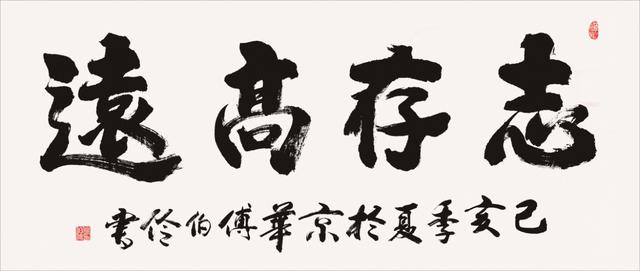 志存高遠
己亥季夏於京華傅伯伶書